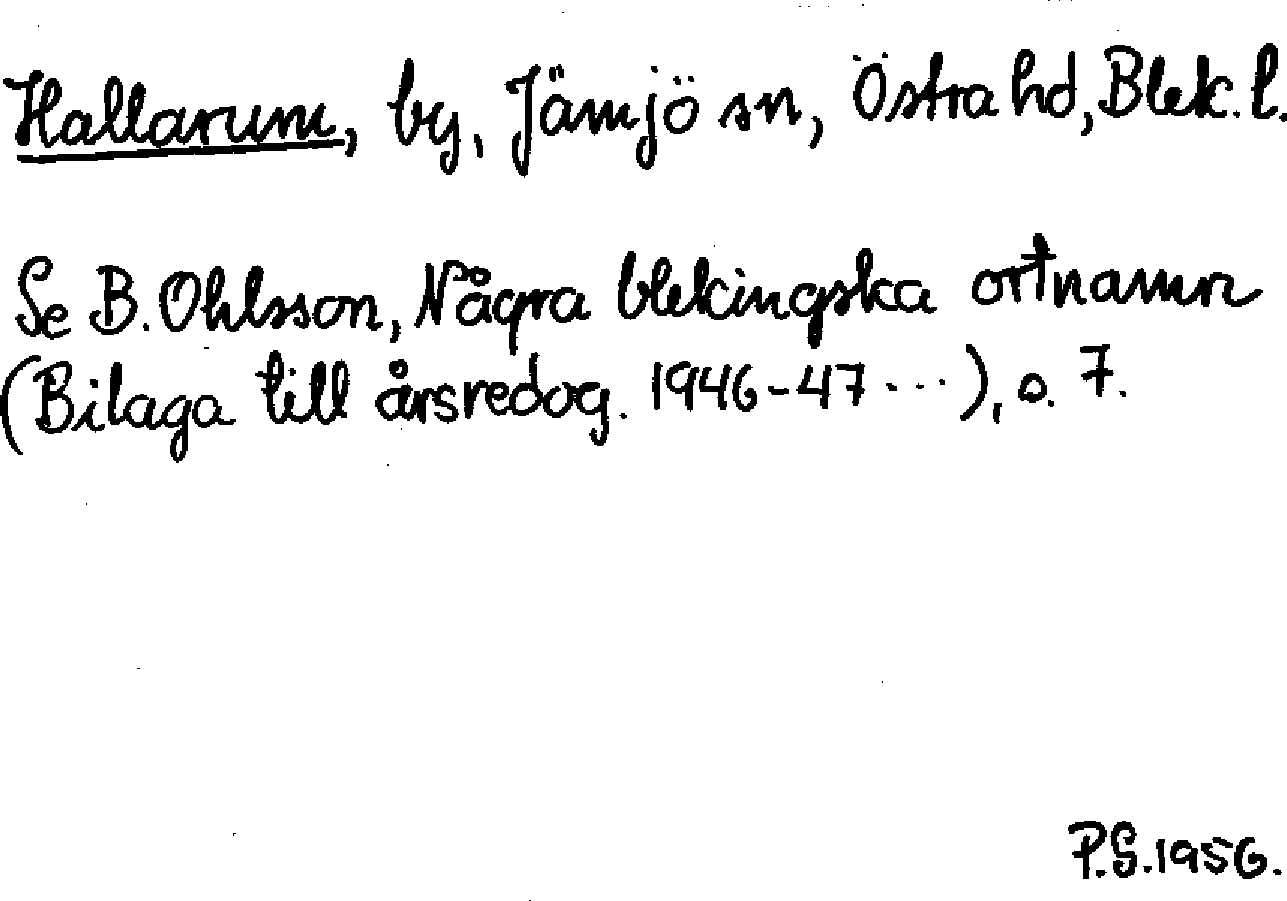 Hallarum, by, Jämjö sn, Östra hd, Blek. l.
Se B. Ohlsson, Några blekingska ortnamn
(Bilaga till årsredog. 1946-47 ...), s. 7.
P.S. 1956.